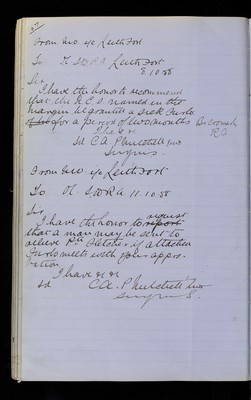 37
From M.O. i/c Leith Fort
To O. S.D.R.A. Leith Fort
8.10.88
Sir
I have the honor to recommend
that the N.C.O. named in the
margin be granted a sick furlo
for a period of two months Br
R.A
I have &c
Sd C.A. P
Surgns.
From M.O. i/c Leith Fort
To O. S.D.R.A 11.10.88
Sir
I have the honor to request
that a man may be sent to
relieve Pte Fletcher if attached
Furlo meets with your appro-
bation.
I have &c &c
Sd C.A. P
Surgns.